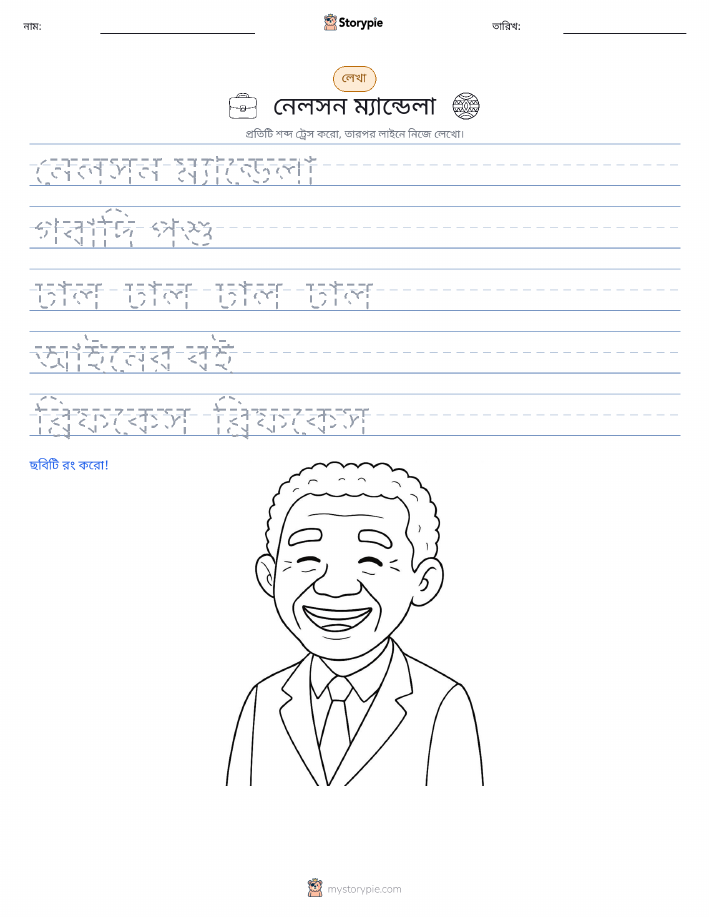 নাম:
Storypie
তারিখ:
লেখা
নেলসন ম্যান্ডেলা
প্রতিটি শব্দ ট্রেস করো, তারপর লাইনে নিজে লেখো।
নেলসন ম্যান্ডেলা
গবাদি পশু
ঢাল ঢাল ঢাল ঢাল
আইনের বই
ব্রিফকেস ব্রিফকেস
ছবিটি রং করো!
mystorypie.com